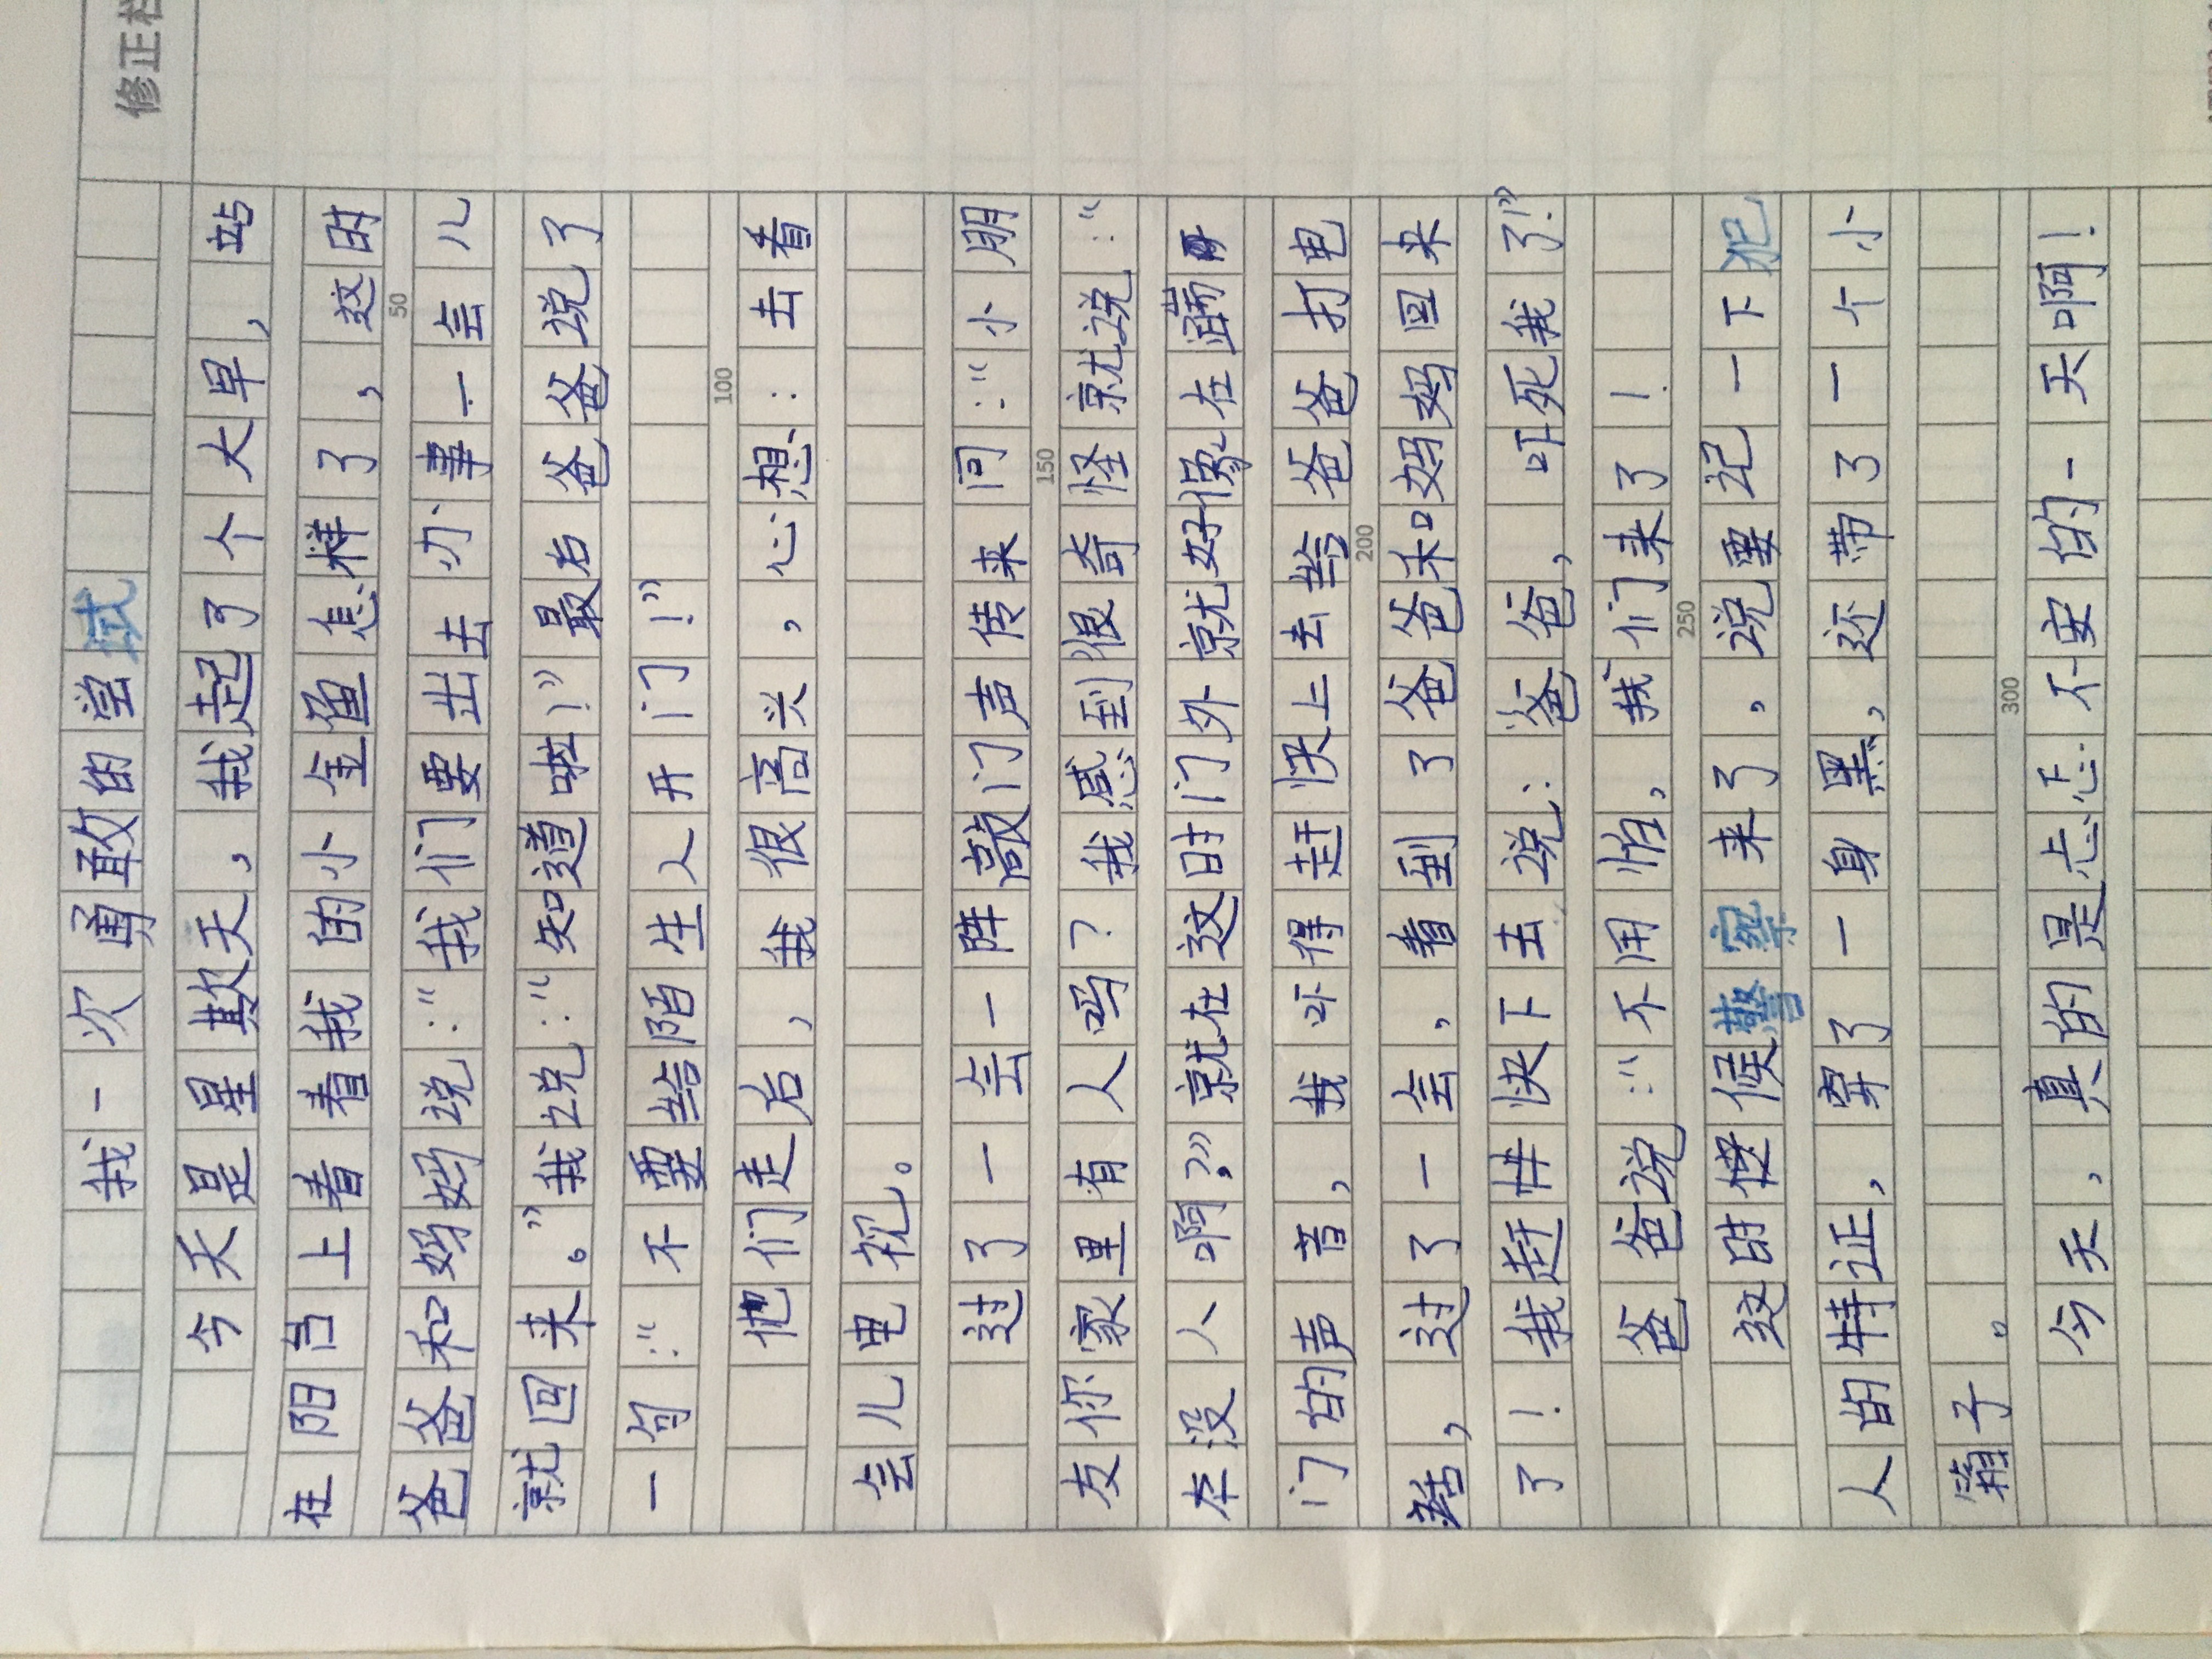 修正栏
我一次勇敢的尝试
今天是星欺天，我起了个大早，站
在阳台上看看我的小金鱼怎样了，这时
爸爸和妈妈说：“我们要出去办事一会儿
就回来。”我说：“知道啦！”最后爸爸说了
一句：“不要给陌生人开门！”
他们走后，我很高兴，心想：去看
会儿电视。
过了一会一阵敲门声传来问：“小朋
友你家里有人吗？我感到很奇怪就说：“
在没人啊？”就在这时门外就好像在
门的声音，我吓得赶快上去给爸爸打电
话，过了一会，看到了爸爸和妈妈回来
了！我赶快下去说：爸爸，吓死我了！”
爸爸说：“不用怕，我们来了！
这时候警察来了，说要记一下犯
人的特证，穿了一身黑，还带了一个小
箱子。
今天，真的是忐忑不安的一天啊！
50
100
150
200
250
300